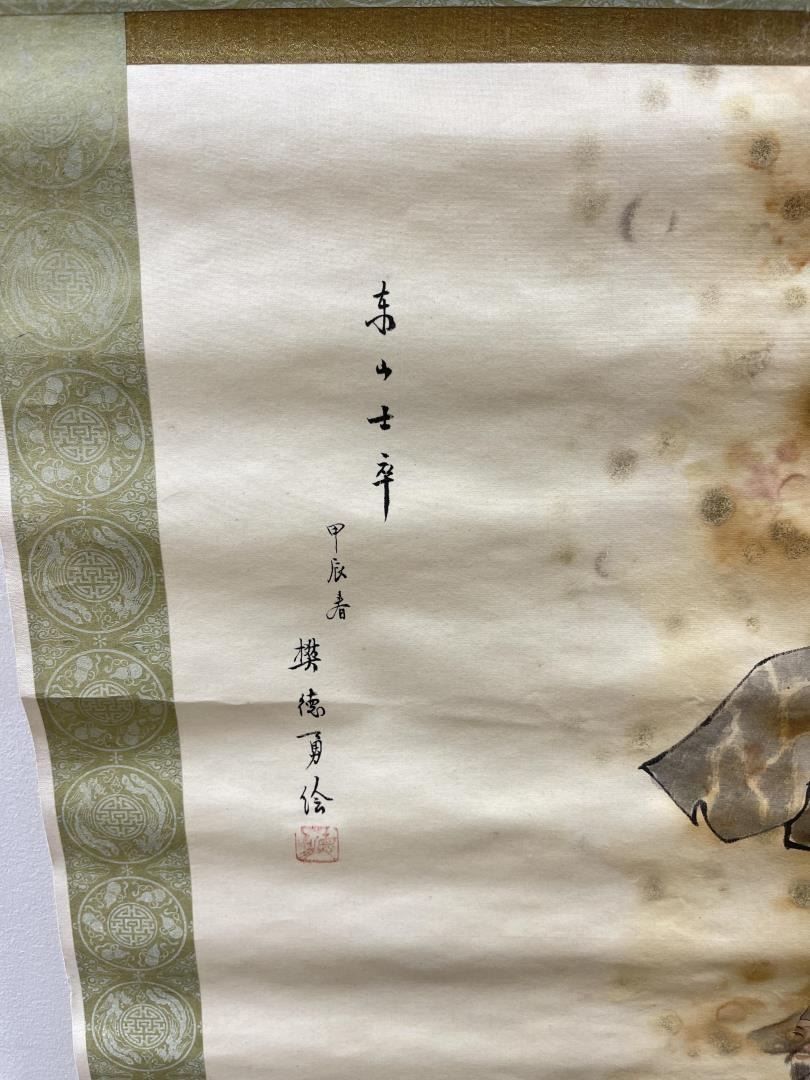 东山士卒
甲辰春
樊德勇绘